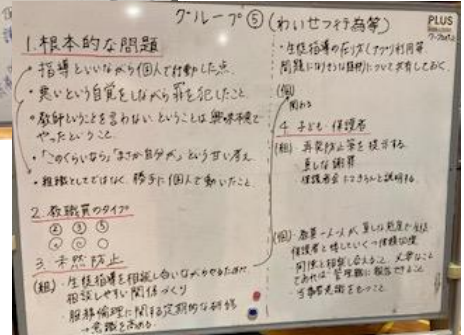 グループ⑤(わいせつ行為等)
PLUS
1.根本的な問題
・指導といいながら個人で行動した点。
・悪いという自覚をしながら罪を犯したこと。
・教師ということを言わない ということは興味本位で
やったということ。
・「このくらいなら」「まさか自分が」という甘い考え。
・組織としてではなく、勝手に個人で動いたこと。
2.教職員のタイプ
② ③ ⑤
3.未然防止
(組)・生徒指導を相談し合いながらやるために
相談しやすい関係づくり
・服務倫理に関する定期的な研修
→意識を高める。
・生徒指導の在り方(アプリ利用等
問題になりそうな
について共有しておく。
(個)
4.子ども・保護者
(組)・再発防止策を提示する。
・真しな謝罪
・保護者会にてきちんと説明する。
(個)・教員一人一人が、真しな態度で生徒
保護者と接していく
同僚と相談し合えること、大事なこと
であれば管理職に報告できること
・当事者意識をもつこと。